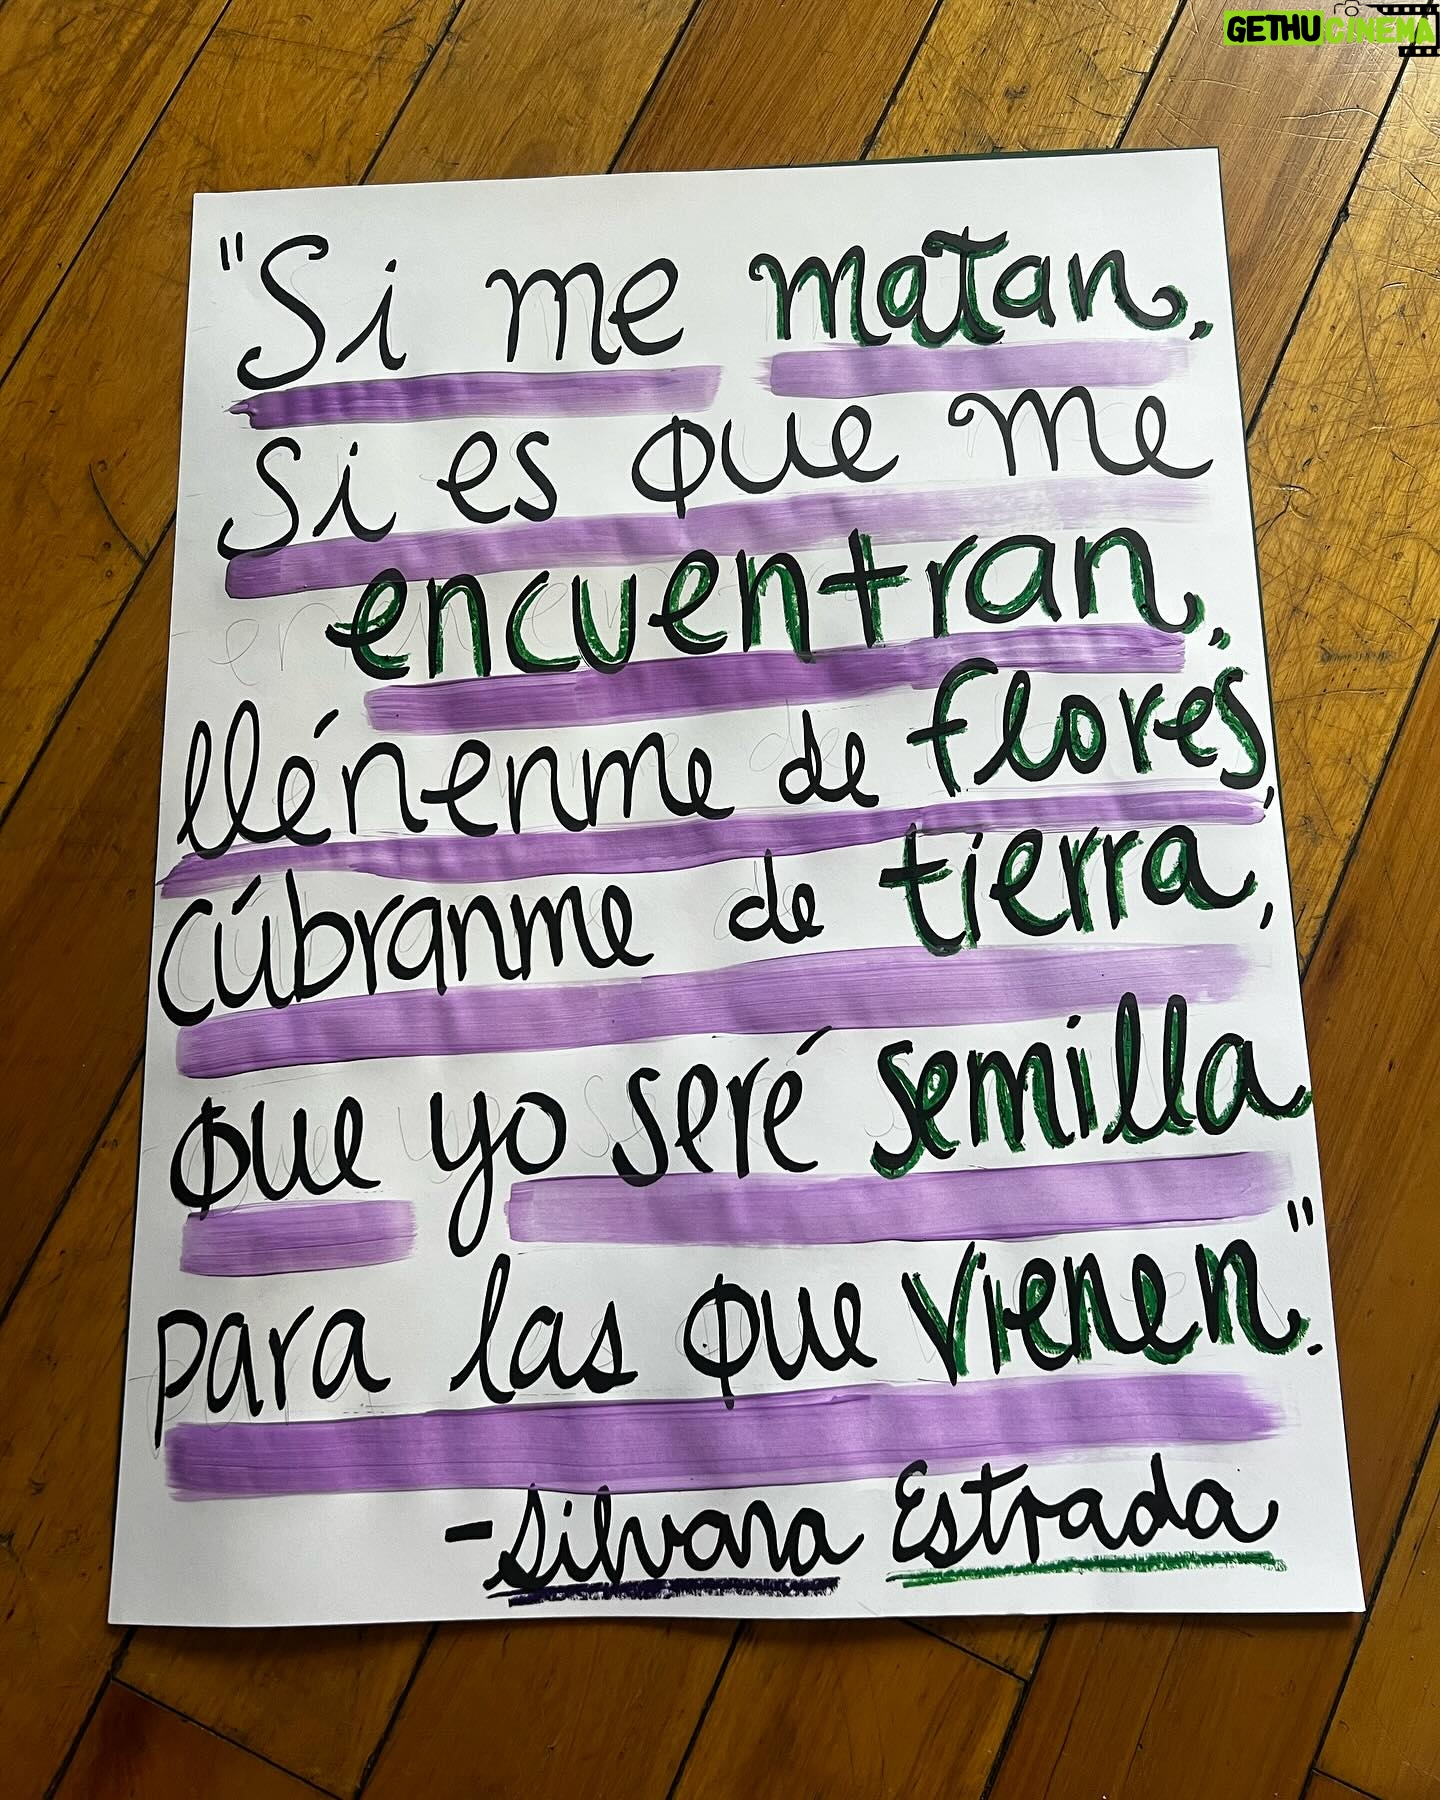 GETHU CINEMA
"Si me matan,
Si es que me
encuentran,
llénenme de flores,
cúbranme de tierra,
que yo seré semilla
para las que vienen."
-Silvana Estrada